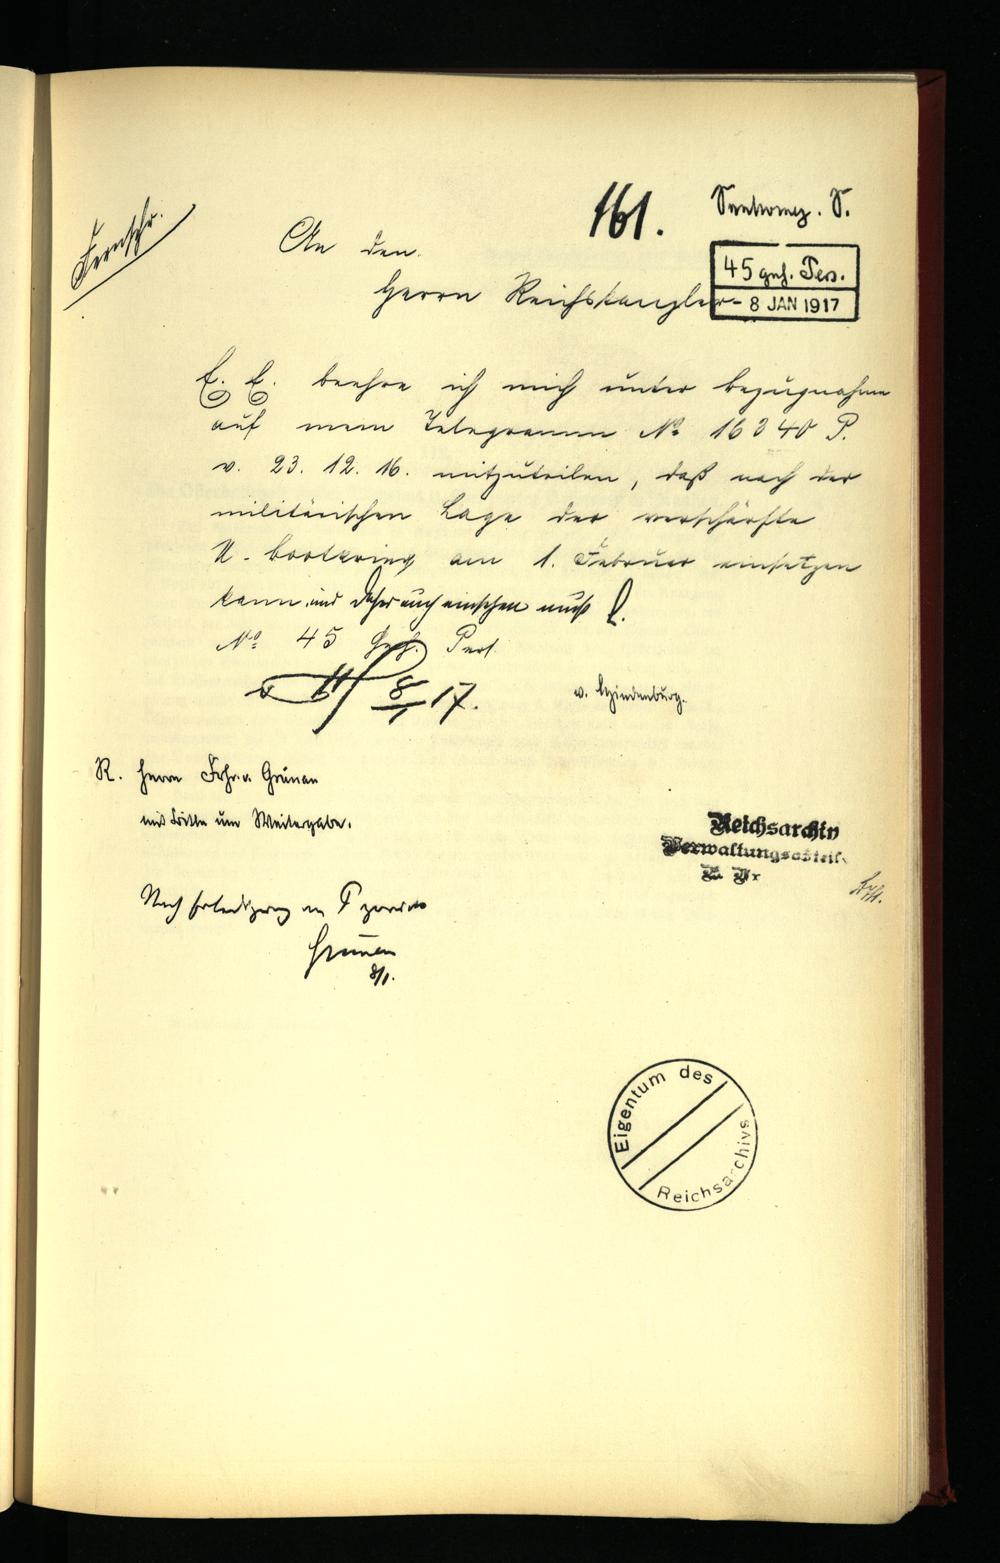 161.
Fernschr.
45 geh. Pers.
- 8 JAN 1917
An den
Herrn Reichskanzler
E. E. beehre ich mich unter Bezugnahme
auf mein Telegramm No 16340 P.
v. 23. 12. 16. mitzuteilen, daß nach der
militärischen Lage der verschärfte
U-bootkrieg am 1. Februar einsetzen
kann und daher auch einsetzen muß
No 45 Geh. Pers.
8/1 17.
v. Hindenburg.
R. Herrn Frhr. v. Grünau
mit Bitte um Weitergabe.
Nach Erledigung an P zurück
Grünau
8/1.
Reichsarchiv
Verwaltungsabteil.
Eigentum des
Reichsarchivs